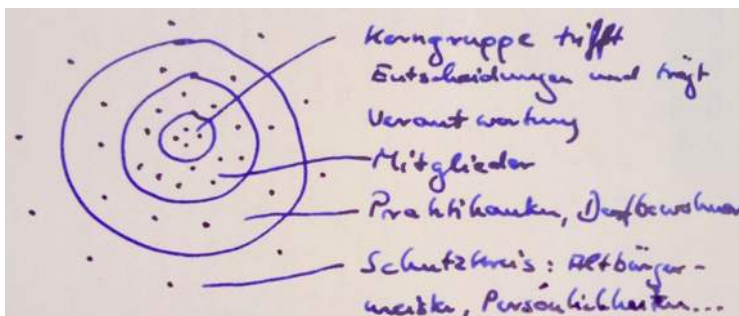 Kerngruppe trifft
Entscheidungen und trägt
Verantwortung
Mitglieder
Praktikanten, Dorfbewohner
Schutzkreis: Altbürger-
meister, Persönlichkeiten...